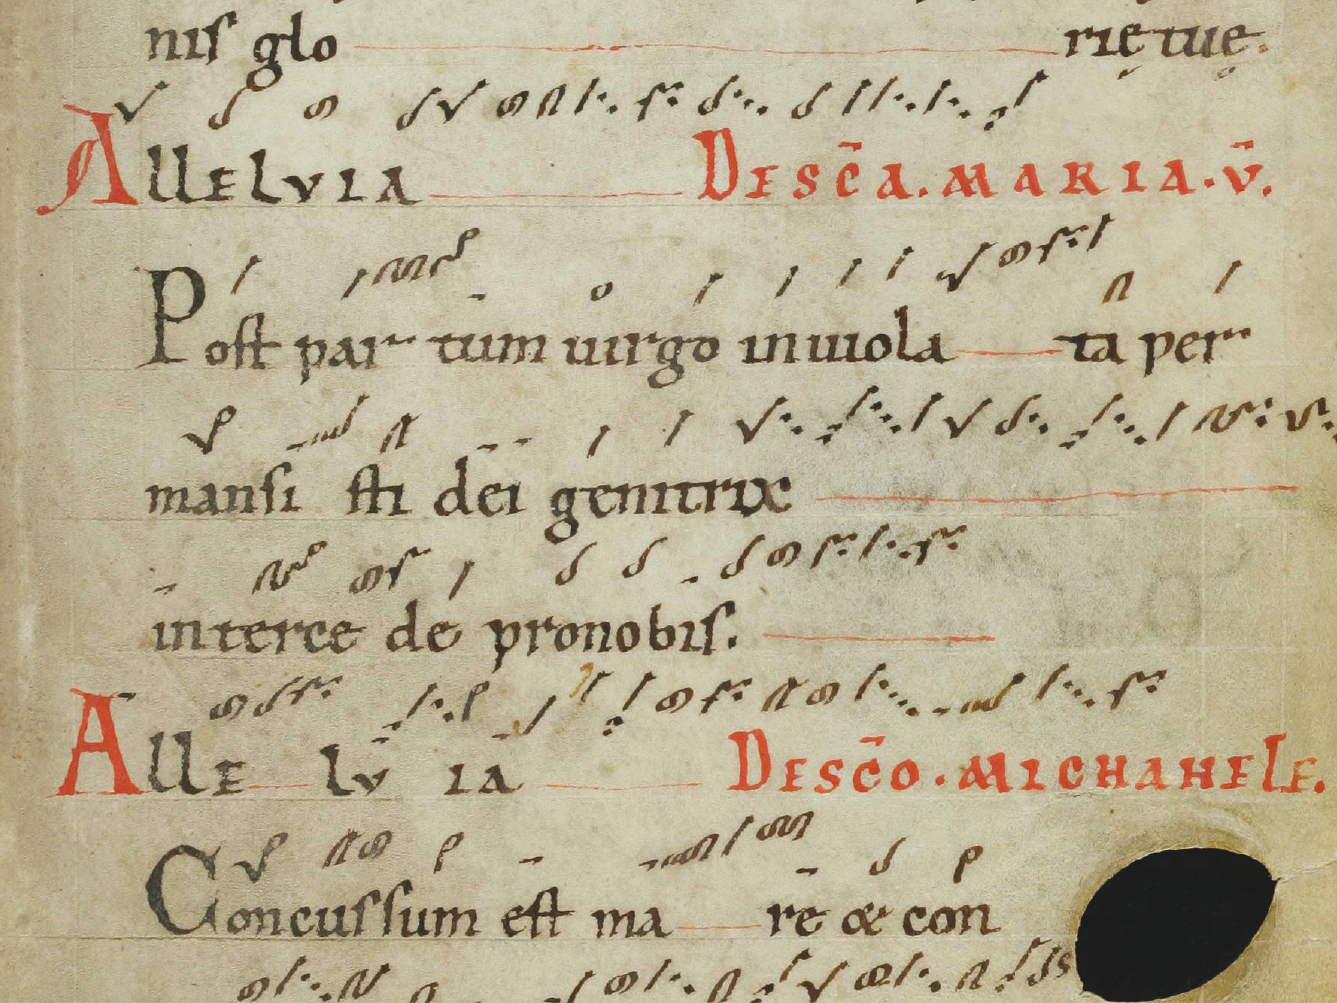 nis glo rię tuę.
Allelvia De sc̄a. maria. v̄.
Post partum uirgo inuiola ta per
mansi sti dei genitrix
interce de pro nobis.
Alle lv ia De sc̄o. Michahele.
Concussum est ma re & con